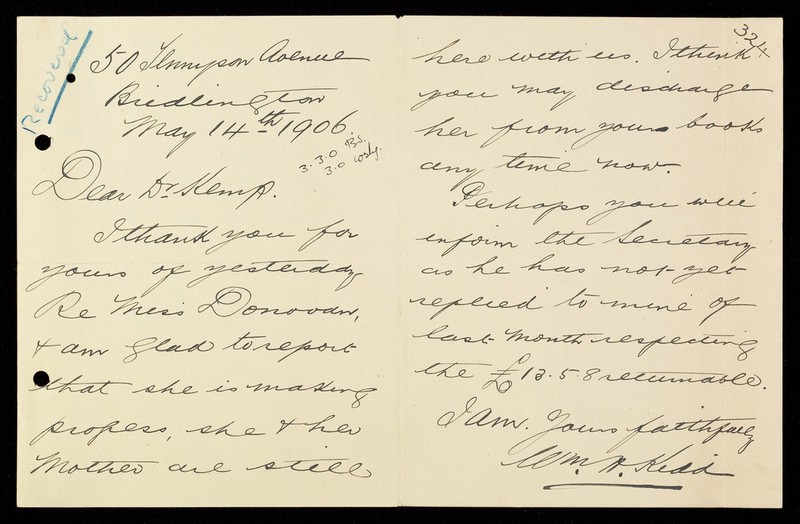 Recovered
50 Tennyson Avenue
Bridlington
May 14th 1906.
3.3.0 Bd.
3.0 Wshg.
Dear Dr. Kemp.
I thank you for
yours of yesterday
Re Miss Donovan,
& am glad to report
that she is making
progess, she & her
Mother are still
324
here with us. I think
you may discharge
her from your books
any time now.
Perhaps you will
inform the Secretary
as he has not yet
replied to mine of
last month respecting
the £13.5.8 returnable.
I am. Yours faithfully
Wm. H. Kidd